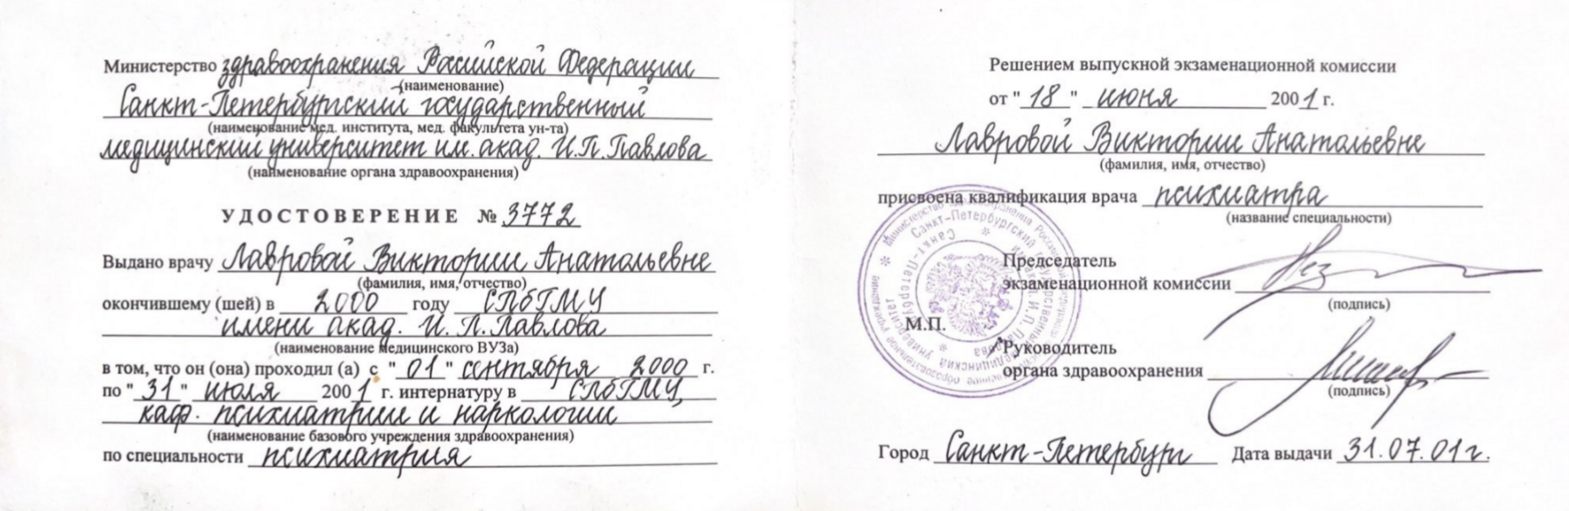 Министерство здравоохранения Российской Федерации
(наименование)
Санкт-Петербургский государственный
(наименование мед. института, мед. факультета ун-та)
медицинский университет им. акад. И.П. Павлова
(наименование органа здравоохранения)
УДОСТОВЕРЕНИЕ № 3772
Выдано врачу Лавровой Виктории Анатольевне
(фамилия, имя, отчество)
окончившему (шей) в 2000 году СПбГМУ
имени акад. И.П. Павлова
(наименование медицинского ВУЗа)
в том, что он (она) проходил (а) с "01" сентября 2000 г.
по "31" июля 2001 г. интернатуру в СПбГМУ,
каф. психиатрии и наркологии
(наименование базового учреждения здравоохранения)
по специальности психиатрия
Решением выпускной экзаменационной комиссии
от "18" июня 2001 г.
Лавровой Виктории Анатольевне
(фамилия, имя, отчество)
присвоена квалификация врача психиатра
(название специальности)
Председатель
экзаменационной комиссии
(подпись)
М.П.
Руководитель
органа здравоохранения
(подпись)
Город Санкт-Петербург Дата выдачи 31.07.01г.